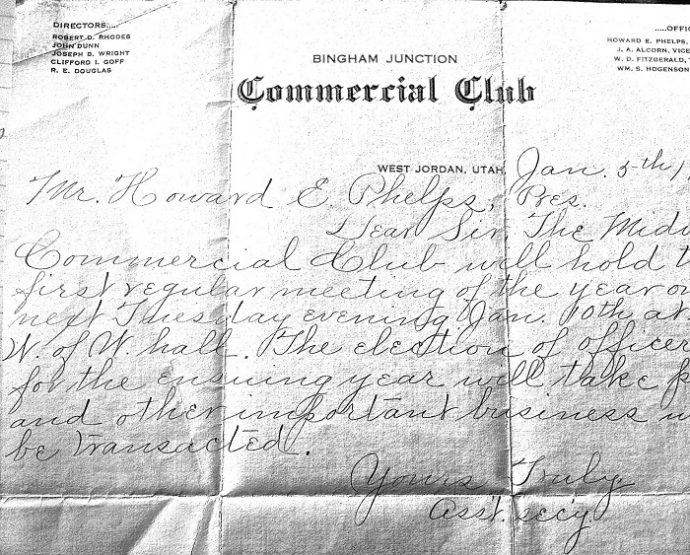 DIRECTORS.....
ROBERT D. RHODES
JOHN DUNN
JOSEPH B. WRIGHT
CLIFFORD I. GOFF
R. E. DOUGLAS
.....OFFIC
HOWARD E. PHELPS,
J. A. ALCORN, VICE
W. D. FITZGERALD, T
WM. S. HOGENSON
BINGHAM JUNCTION
Commercial Club
WEST JORDAN, UTAH, Jan. 5th 1
Mr. Howard E. Phelps, Pres.
Dear Sir, The Midv
Commercial Club will hold t
first regular meeting of the year on
next Tuesday evening Jan. 10th at
W. of W. hall. The election of officer
for the ensuing year will take p
and other important business w
be transacted.
Yours Truly
Asst. secy